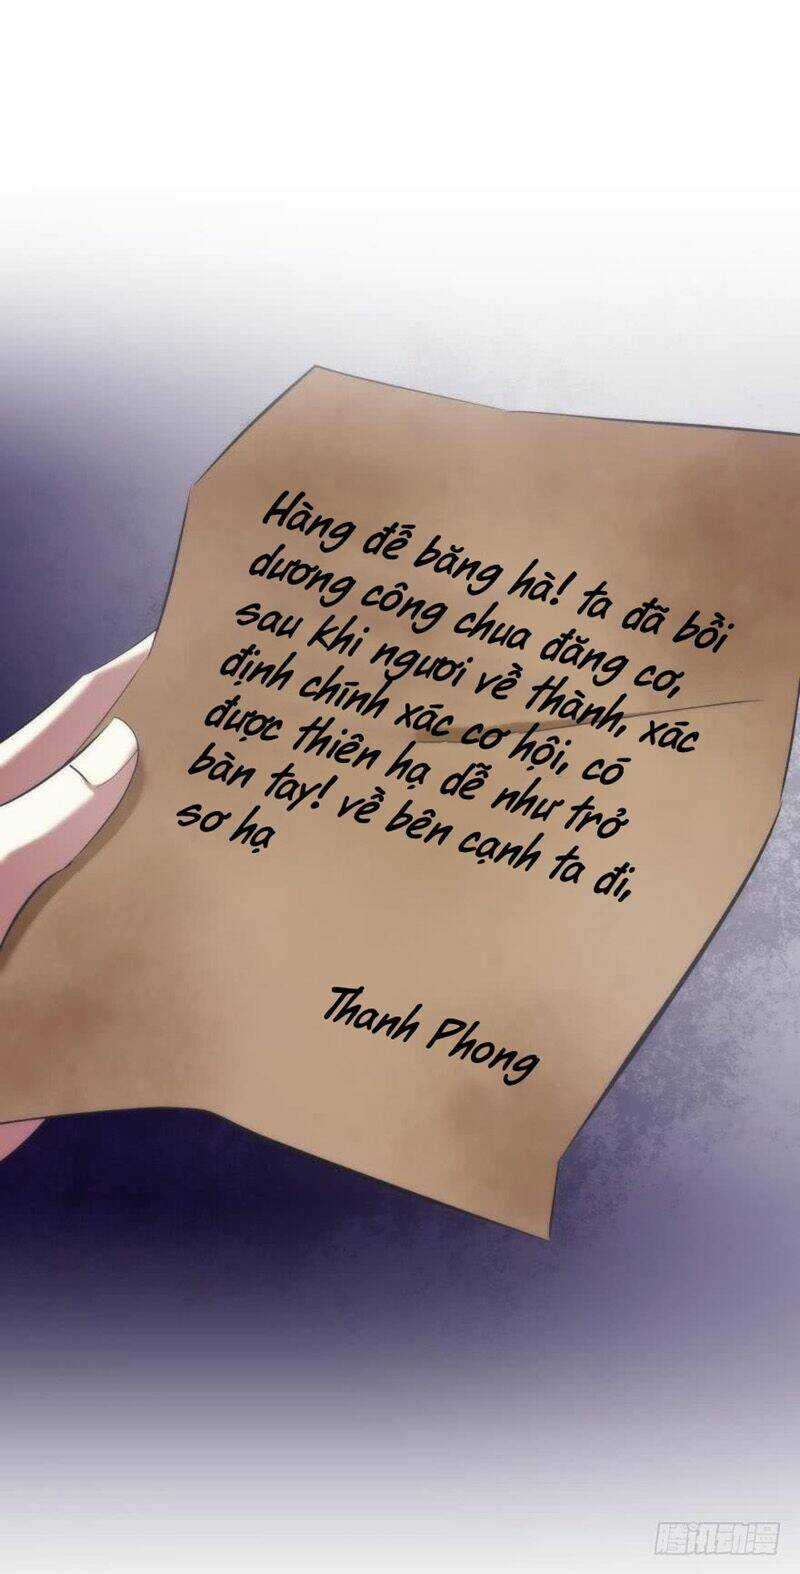 Hàng đễ băng hà! ta đã bồi
dương công chua đăng cơ,
sau khi ngươi về thành, xác
định chính xác cơ hội, có
được thiên hạ dễ như trở
bàn tay! về bên cạnh ta đi,
sơ hạ
Thanh Phong
腾讯动漫